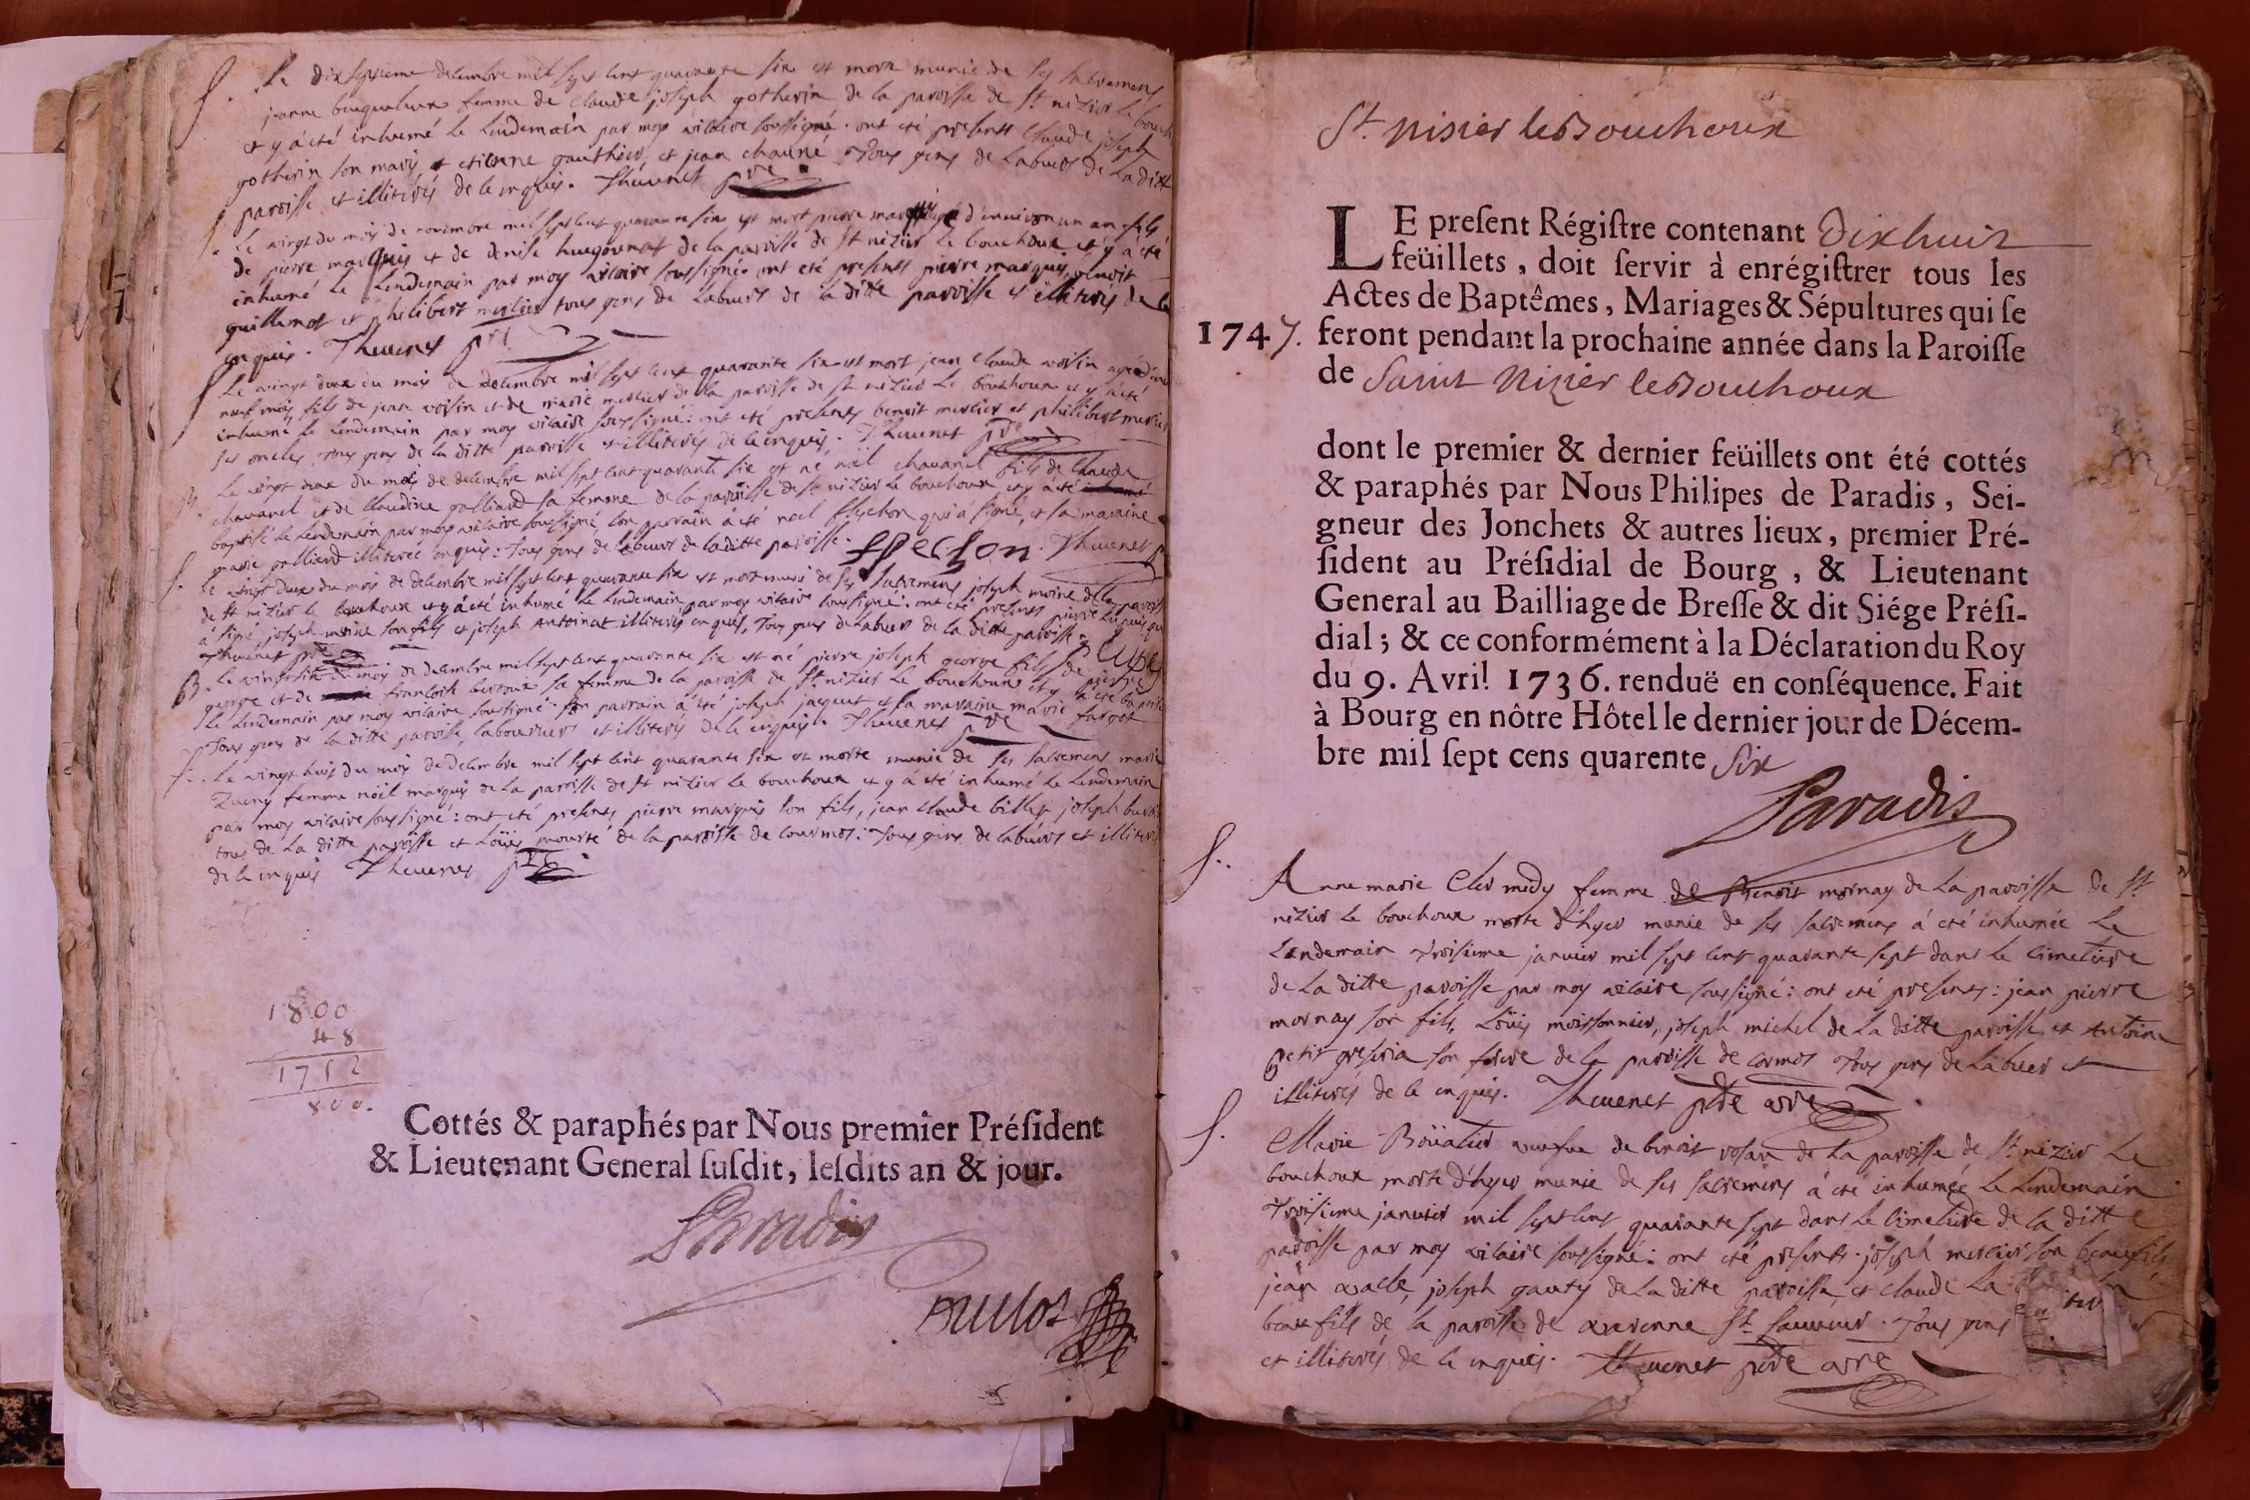 S. Le dixseptieme decembre mil sept cent quarante six est morte munie de ses sacremens
jeanne femme de Claude joseph gotherin de la paroisse de St nizier le bouch
et y a été inhumé le lendemain par moy vicaire soussigné. ont été presents Claude joseph
gotherin son mary, et etienne gauthier, et jean chauné Tous gens de labeur de la ditte
paroisse et illiterés de ce enquis. Theuenet pre
S. Le vingt du mois de novembre mil sept cent quarante six est mort pierre marquis d'environ un an fils
de pierre marquis et de denise huguenot de la paroisse de St nizier le bouchoux et y a été
inhumé le lendemain par moy vicaire soussigné. ont été presents pierre marquis, benoit
guillemot et philibert mercier tous gens de labeurs de la ditte paroisse et illiterés de ce
enquis. Theuenet pre
S Le vingt deux du mois de decembre mil sept cent quarante six est mort jean Claude voisin agé d'env
neuf mois fils de jean voisin et de marie mercier de la paroisse de st nizier le bouchoux et y a été
inhumé le lendemain par moy vicaire soussigné: ont été presents benoit mercier et philibert mercier
ses oncles tous gens de la ditte paroisse et illiterés de ce enquis. Theuenet pre
B. Le vingt deux du mois de decembre mil sept cent quarante six est né noël chavanel fils de Claude
chavanel et de Claudine galliard sa femme de la paroisse de st nizier le bouchoux et y a été
baptisé le lendemain par moy vicaire soussigné, son parrain a été noel signé, et sa maraine
marie galliard illiterée enquis: Tous gens de labeurs de la ditte paroisse. Theuenet p
S. Le vingt deux du mois de decembre mil sept cent quarante six est mort muni de ses sacremens joseph moine de la paroisse
de st nizier le bouchoux et y a été inhumé le lendemain par moy vicaire soussigné: ont été presents pierre
a signé joseph moine son fils et joseph Antoinat illiterés enquis, Tous gens de labeur de la ditte paroisse
Theuenet pre
B. Le vingt six du mois de decembre mil sept cent quarante six est né pierre joseph george fils de pierre
george et de françoise sa femme de la paroisse de St nizier le bouchoux et y a été baptisé
le lendemain par moy vicaire soussigné. son parrain a été joseph jacquet et sa maraine marie
Tous gens de la ditte paroisse, laboureurs et illiterés de ce enquis. Theuenet pre
S. Le vingt huit du mois de decembre mil sept cent quarante six est morte munie de ses sacremens marie
femme noël marquis de la paroisse de St nizier le bouchoux et y a été inhumé le lendemain
par moy vicaire soussigné: ont été presents pierre marquis son fils, jean Claude billet, joseph
tous de la ditte paroisse et Loüis mourté de la paroisse de courmos: Tous gens de labeurs et illiterés
de ce enquis Theuenet pre
1800
48
1752
800.
Cottés & paraphés par Nous premier Président
& Lieutenant General susdit, lesdits an & jour.
Paradis
St. Nisier leBouchoux
LE present Régistre contenant Dixhuit
feüillets, doit servir à enrégistrer tous les
Actes de Baptêmes, Mariages & Sépultures qui se
1747. feront pendant la prochaine année dans la Paroisse
de Saint Nizier leBouchoux
dont le premier & dernier feüillets ont été cottés
& paraphés par Nous Philipes de Paradis, Sei-
gneur des Jonchets & autres lieux, premier Pré-
sident au Présidial de Bourg, & Lieutenant
General au Bailliage de Bresse & dit Siége Prési-
dial; & ce conformément à la Déclaration du Roy
du 9. Avril 1736. renduë en conséquence. Fait
à Bourg en nôtre Hôtel le dernier jour de Décem-
bre mil sept cens quarente Six
Paradis
S. Anne marie Clermidy femme de Benoit mornay de la paroisse de St
nizier le bouchoux morte d'hyer munie de ses sacremens á été inhumée le
Lendemain troisieme janvier mil sept cent quarante sept dans le cimetiere
de la ditte paroisse par moy vicaire soussigné: ont été presents: jean pierre
mornay son fils, Loüis moissonnier, joseph michel de la ditte paroisse, et Antoine
petit son frere de la paroisse de cormos Tous gens de labeur et
illiterés de ce enquis. Theuenet pre vre
S. Marie veufue de benoit de la paroisse de St nizier le
bouchoux morte d'hyer munie de ses sacremens á été inhumée le Lendemain
troisieme janvier mil sept cent quarante sept dans le cimetiere de la ditte
paroisse par moy vicaire soussigné: ont été presents. joseph mercier son beaufils,
jean joseph gauty de la ditte paroisse, et Claude La
beau fils de la paroisse de varenne St Sauveur. Tous gens
et illiterés de ce enquis. Theuenet pre vre